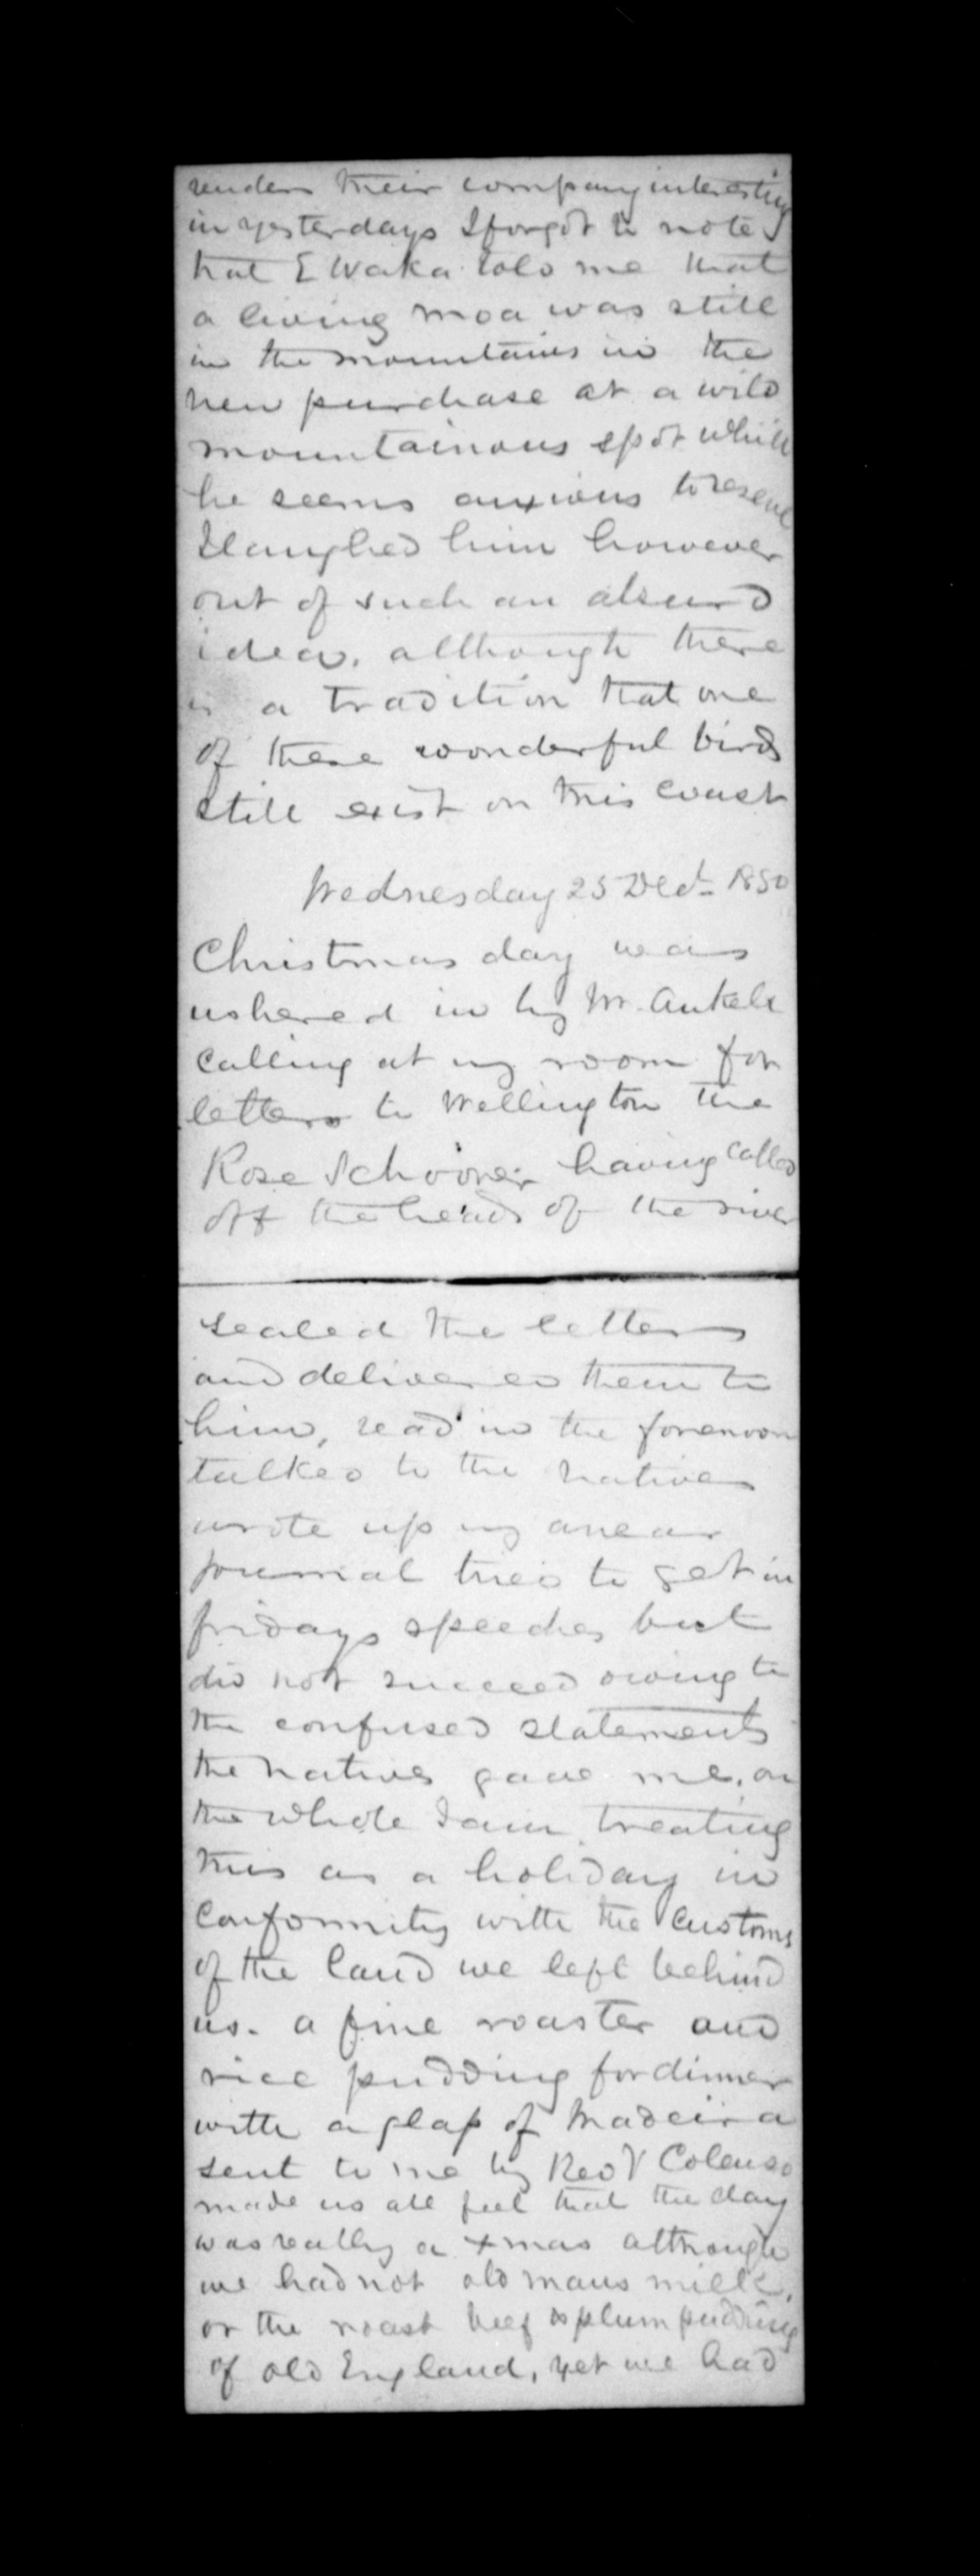 renders their company interesting
in yesterdays I forgot to note
that E Waka told me that
a living moa was still
in the mountains in the
new purchase at a wild
mountainous spot which
he seems anxious to reserve
I laughed him however
out of such an absurd
idea, although there
is a tradition that one
of these wonderful birds
still exist on this coast
Wednesday 25 Decr 1850
Christmas day was
ushered in by Mr. Ankatell
calling at my room for
letters to Wellington the
Rose Schooner having called
off the heads of the river
sealed the letters
and delivered them to
him, read in the forenoon
talked to the natives
wrote up my
journal tried to get in
fridays speeches but
did not succeed owing to
the confused statements
the natives gave me, on
the whole I am treating
this as a holiday in
conformity with the customs
of the land we left behind
us. a fine roaster and
rice pudding for dinner
with a glass of Madeira
sent to me by Revd Colenso
made us all feel that the day
was really a Xmas although
we had not old mans milk,
or the roast beef & plum pudding
of old England, yet we had